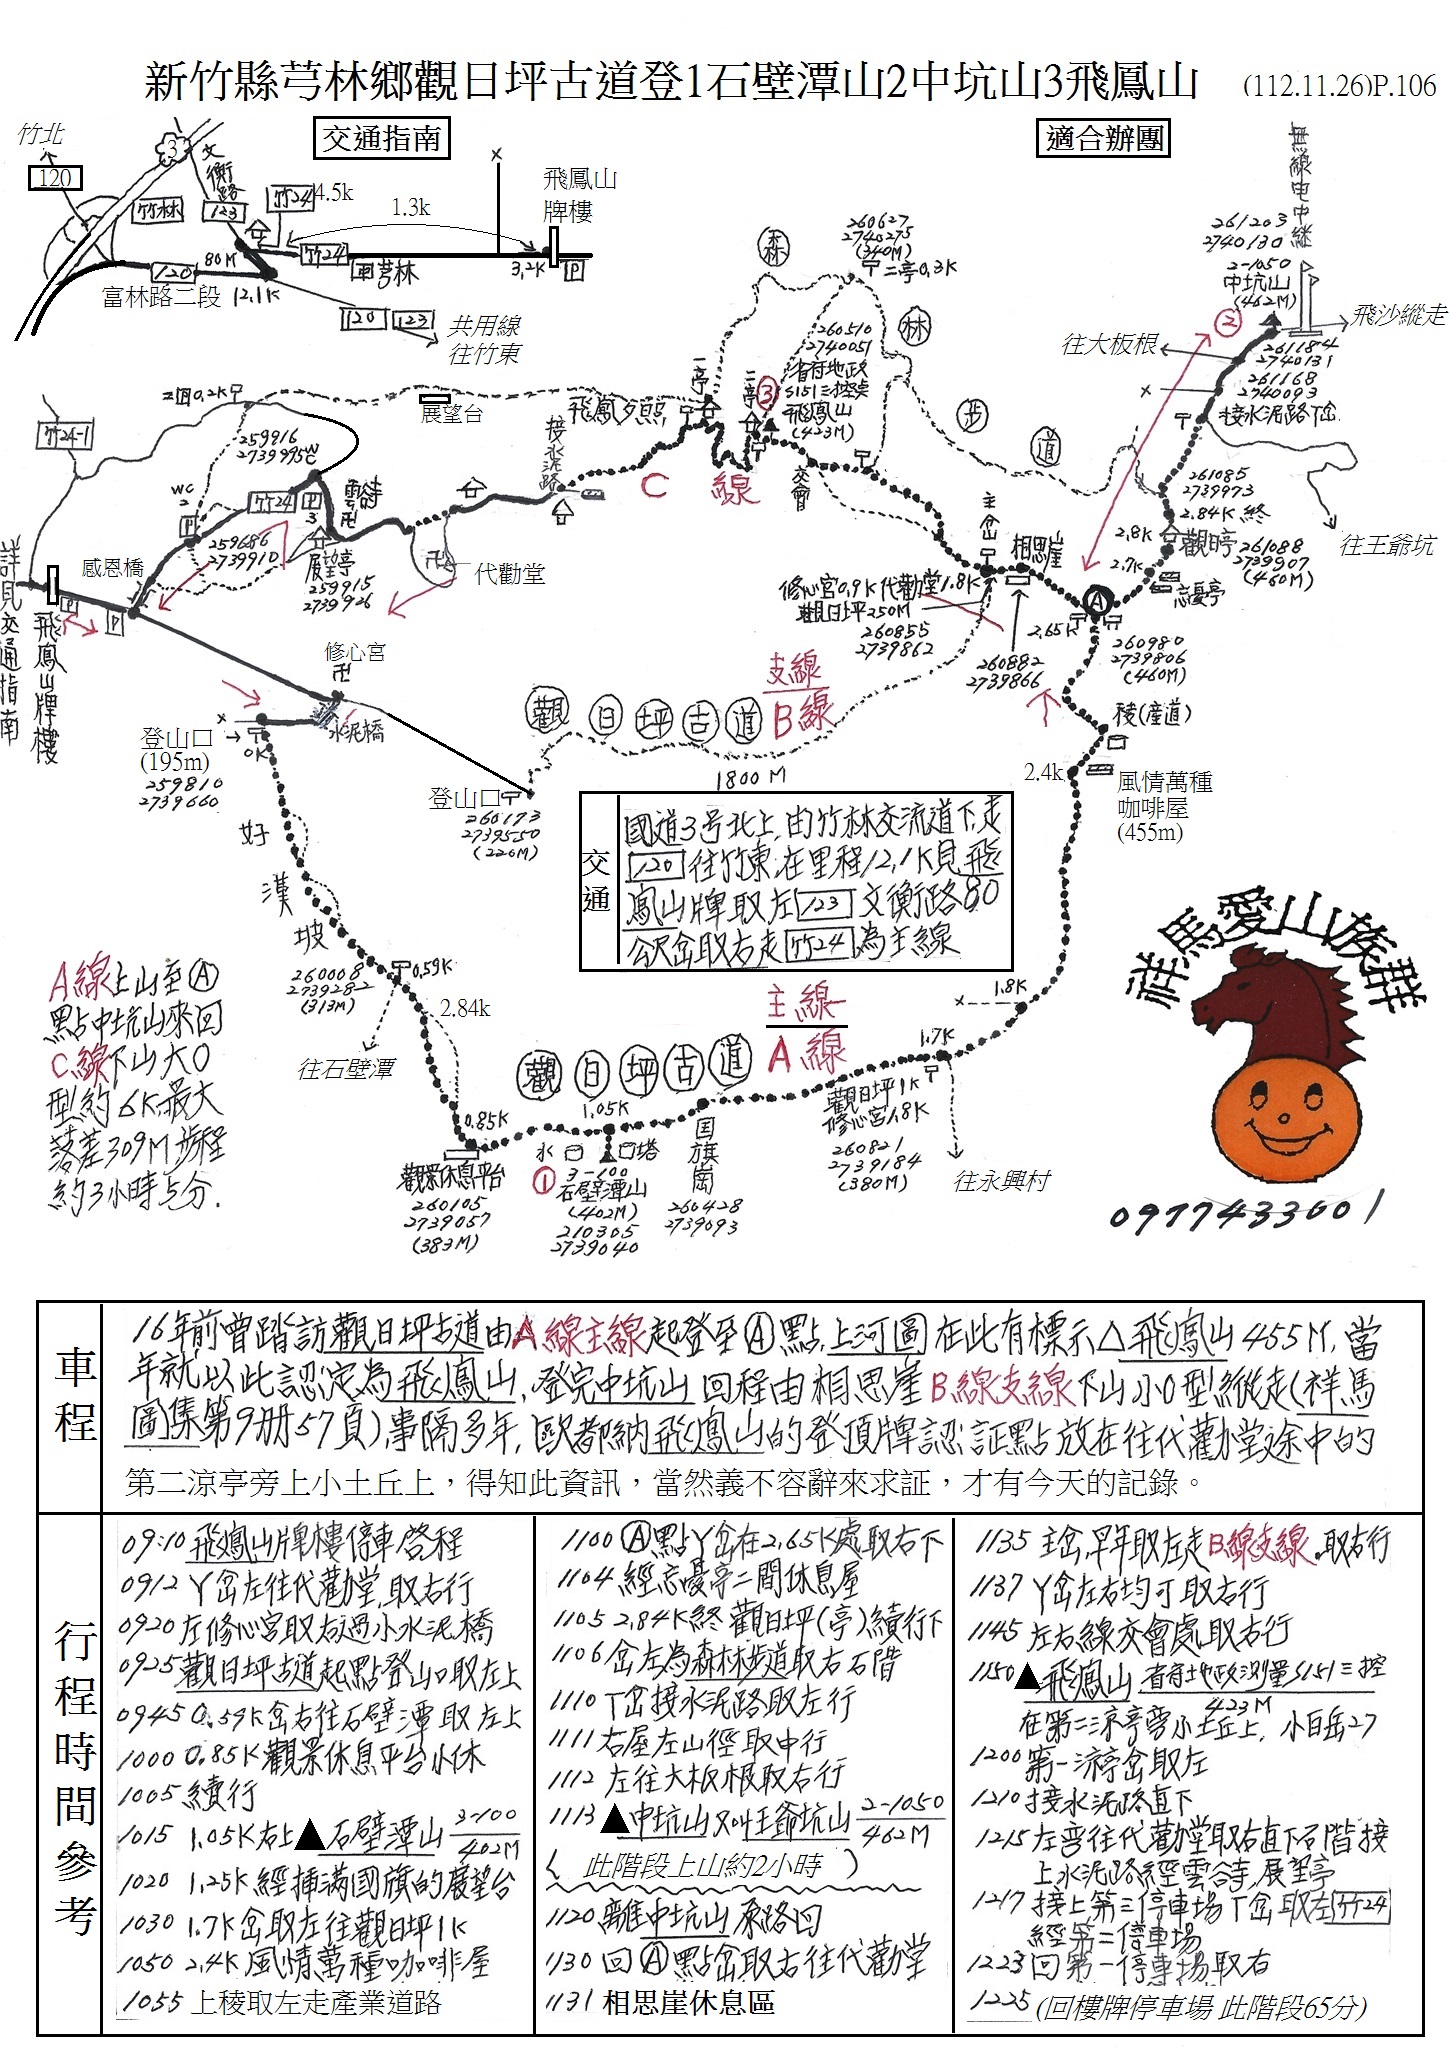 新竹縣芎林鄉觀日坪古道登1石壁潭山2中坑山3飛鳳山
(112.11.26)P.106
交通指南
適合辦團
竹北
120
3
文衡路
竹林
123
竹24
4.5k
1.3k
竹24
x
飛鳳山
牌樓
3.2K
P
芎林
80M
120
富林路二段
12.1K
120
123
共用線
往竹東
無線电中継
261203
2740130
2-1050
中坑山
(462M)
②
飛沙縱走
往大板根
261184
2740131
261168
2740093
x
接水泥路下岔
往王爺坑
261085
2739973
2.84K 終
2.8K
觀日亭
261088
2739907
(460M)
2.7K
忘憂亭
森
林
步
道
260627
2740275
(340M)
二亭0.3K
260510
2740051
省府地政
S151三控点
飛鳳山
(423M)
③
一亭
二亭
飛鳳夕照
交會
C 線
接水泥路
展望台
0.2K
竹24-1
259916
2739995
WC
WC
2
P
竹24
P
3
雲谷寺
卍
259686
2739910
展望亭
259915
2739926
卍
代勸堂
詳見交通指南
飛鳳山牌樓
感恩橋
P
P
修心宮
卍
水泥橋
x
登山口
(195m)
259810
2739660
0K
登山口
260173
2739550
(226M)
主岔
相思崖
修心宮0.9K 代勸堂1.8K
觀日坪250M
260855
2739862
260882
2739866
2.65K
A
260980
2739806
(460M)
稜(産道)
2.4k
風情萬種
咖啡屋
(455m)
支線
B線
觀日坪古道
1800 M
交通
國道3号北上,由竹林交流道下,走
120往竹東,在里程12.1K見飛
鳳山牌取左123文衡路80
公尺岔取右走竹24為主線
祥馬愛山族群
0977433601
好漢坡
260008
2739282
(313M)
0.59K
2.84k
往石壁潭
A線上山至Ⓐ
點中坑山來回
C線下山大O
型約6K最大
落差309M步程
約3小時5分.
主線
A線
觀日坪古道
0.85K
觀景休息平台
260105
2739057
(383M)
1.05K
水
塔
①
3-100
石壁潭山
(402M)
210305
2739040
国旗崗
260428
2739093
1.7K
1.8K
x
觀日坪1K
修心宮1.8K
260821
2739184
(380M)
往永興村
車程
16年前曾踏訪觀日坪古道由A線主線起登至Ⓐ點,上河圖在此有標示△飛鳳山455M,當
年就以此認定為飛鳳山,登完中坑山回程由相思崖B線支線下山小O型縱走(祥馬
圖集第9册57頁),事隔多年,歐都納飛鳳山的登頂牌認証點放在往代勸堂途中的
第二涼亭旁上小土丘上，得知此資訊，當然義不容辭來求証，才有今天的記錄。
行程時間參考
09:10 飛鳳山牌樓停車啓程
0912 Y岔左往代勸堂,取右行
0920 左修心宮取右過小水泥橋
0925 觀日坪古道起點登山口取左上
0945 0.59K岔右往石壁潭取左上
1000 0.85K觀景休息平台小休
1005 續行
1015 1.05K右上▲石壁潭山 3-100 402M
1020 1.25K經揷滿國旗的展望台
1030 1.7K岔取左往觀日坪1K
1050 2.4K風情萬種咖啡屋
1055 上稜取左走產業道路
1100 Ⓐ點Y岔在2.65K處取右下
1104 經忘憂亭二間休息屋
1105 2.84K終觀日坪(亭)續行下
1106 岔左為森林步道取右石階
1110 T岔接水泥路取左行
1111 右屋左山徑取中行
1112 左往大板根取右行
1113 ▲中坑山又叫王爺坑山 2-1050 462M
( 此階段上山約2小時 )
1120 離中坑山原路回
1130 回Ⓐ點岔取右往代勸堂
1131 相思崖休息區
1135 主岔,早年取左走B線支線,取右行
1137 Y岔左右均可取右行
1145 左右線交會處,取右行
1150 ▲飛鳳山 省府地政測量S151三控 423M
在第二涼亭旁小土丘上,小百岳27
1200 第一涼亭岔取左
1210 接水泥路直下
1215 左彎往代勸堂取右直下石階接
上水泥路經雲谷寺,展望亭
1217 接上第三停車場T岔取左竹24
經第二停車場
1223 回第一停車場取右
1225 (回樓牌停車場 此階段65分)